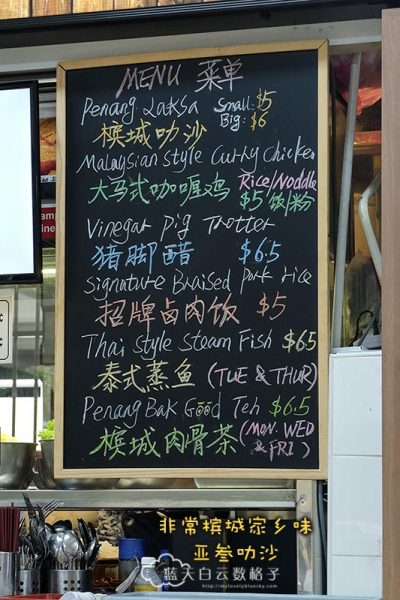 MENU 菜单
Penang Laksa Small: $5
Big: $6
槟城叻沙
Malaysian style Curry Chicken
大马式咖喱鸡 Rice/Noddle
$5 饭/粉
Vinegar Pig Trotter
猪脚醋 $6.5
Signature Braised Pork rice
招牌卤肉饭 $5
Thai Style Steam Fish $6.5
泰式蒸鱼 (TUE & THUR)
Penang Bak Good Teh $6.5
槟城肉骨茶 (MON, WED
& FRI)
非常槟城家乡味
亚参叻沙
蓝天白云数格子
http://mylovelybluesky.com/